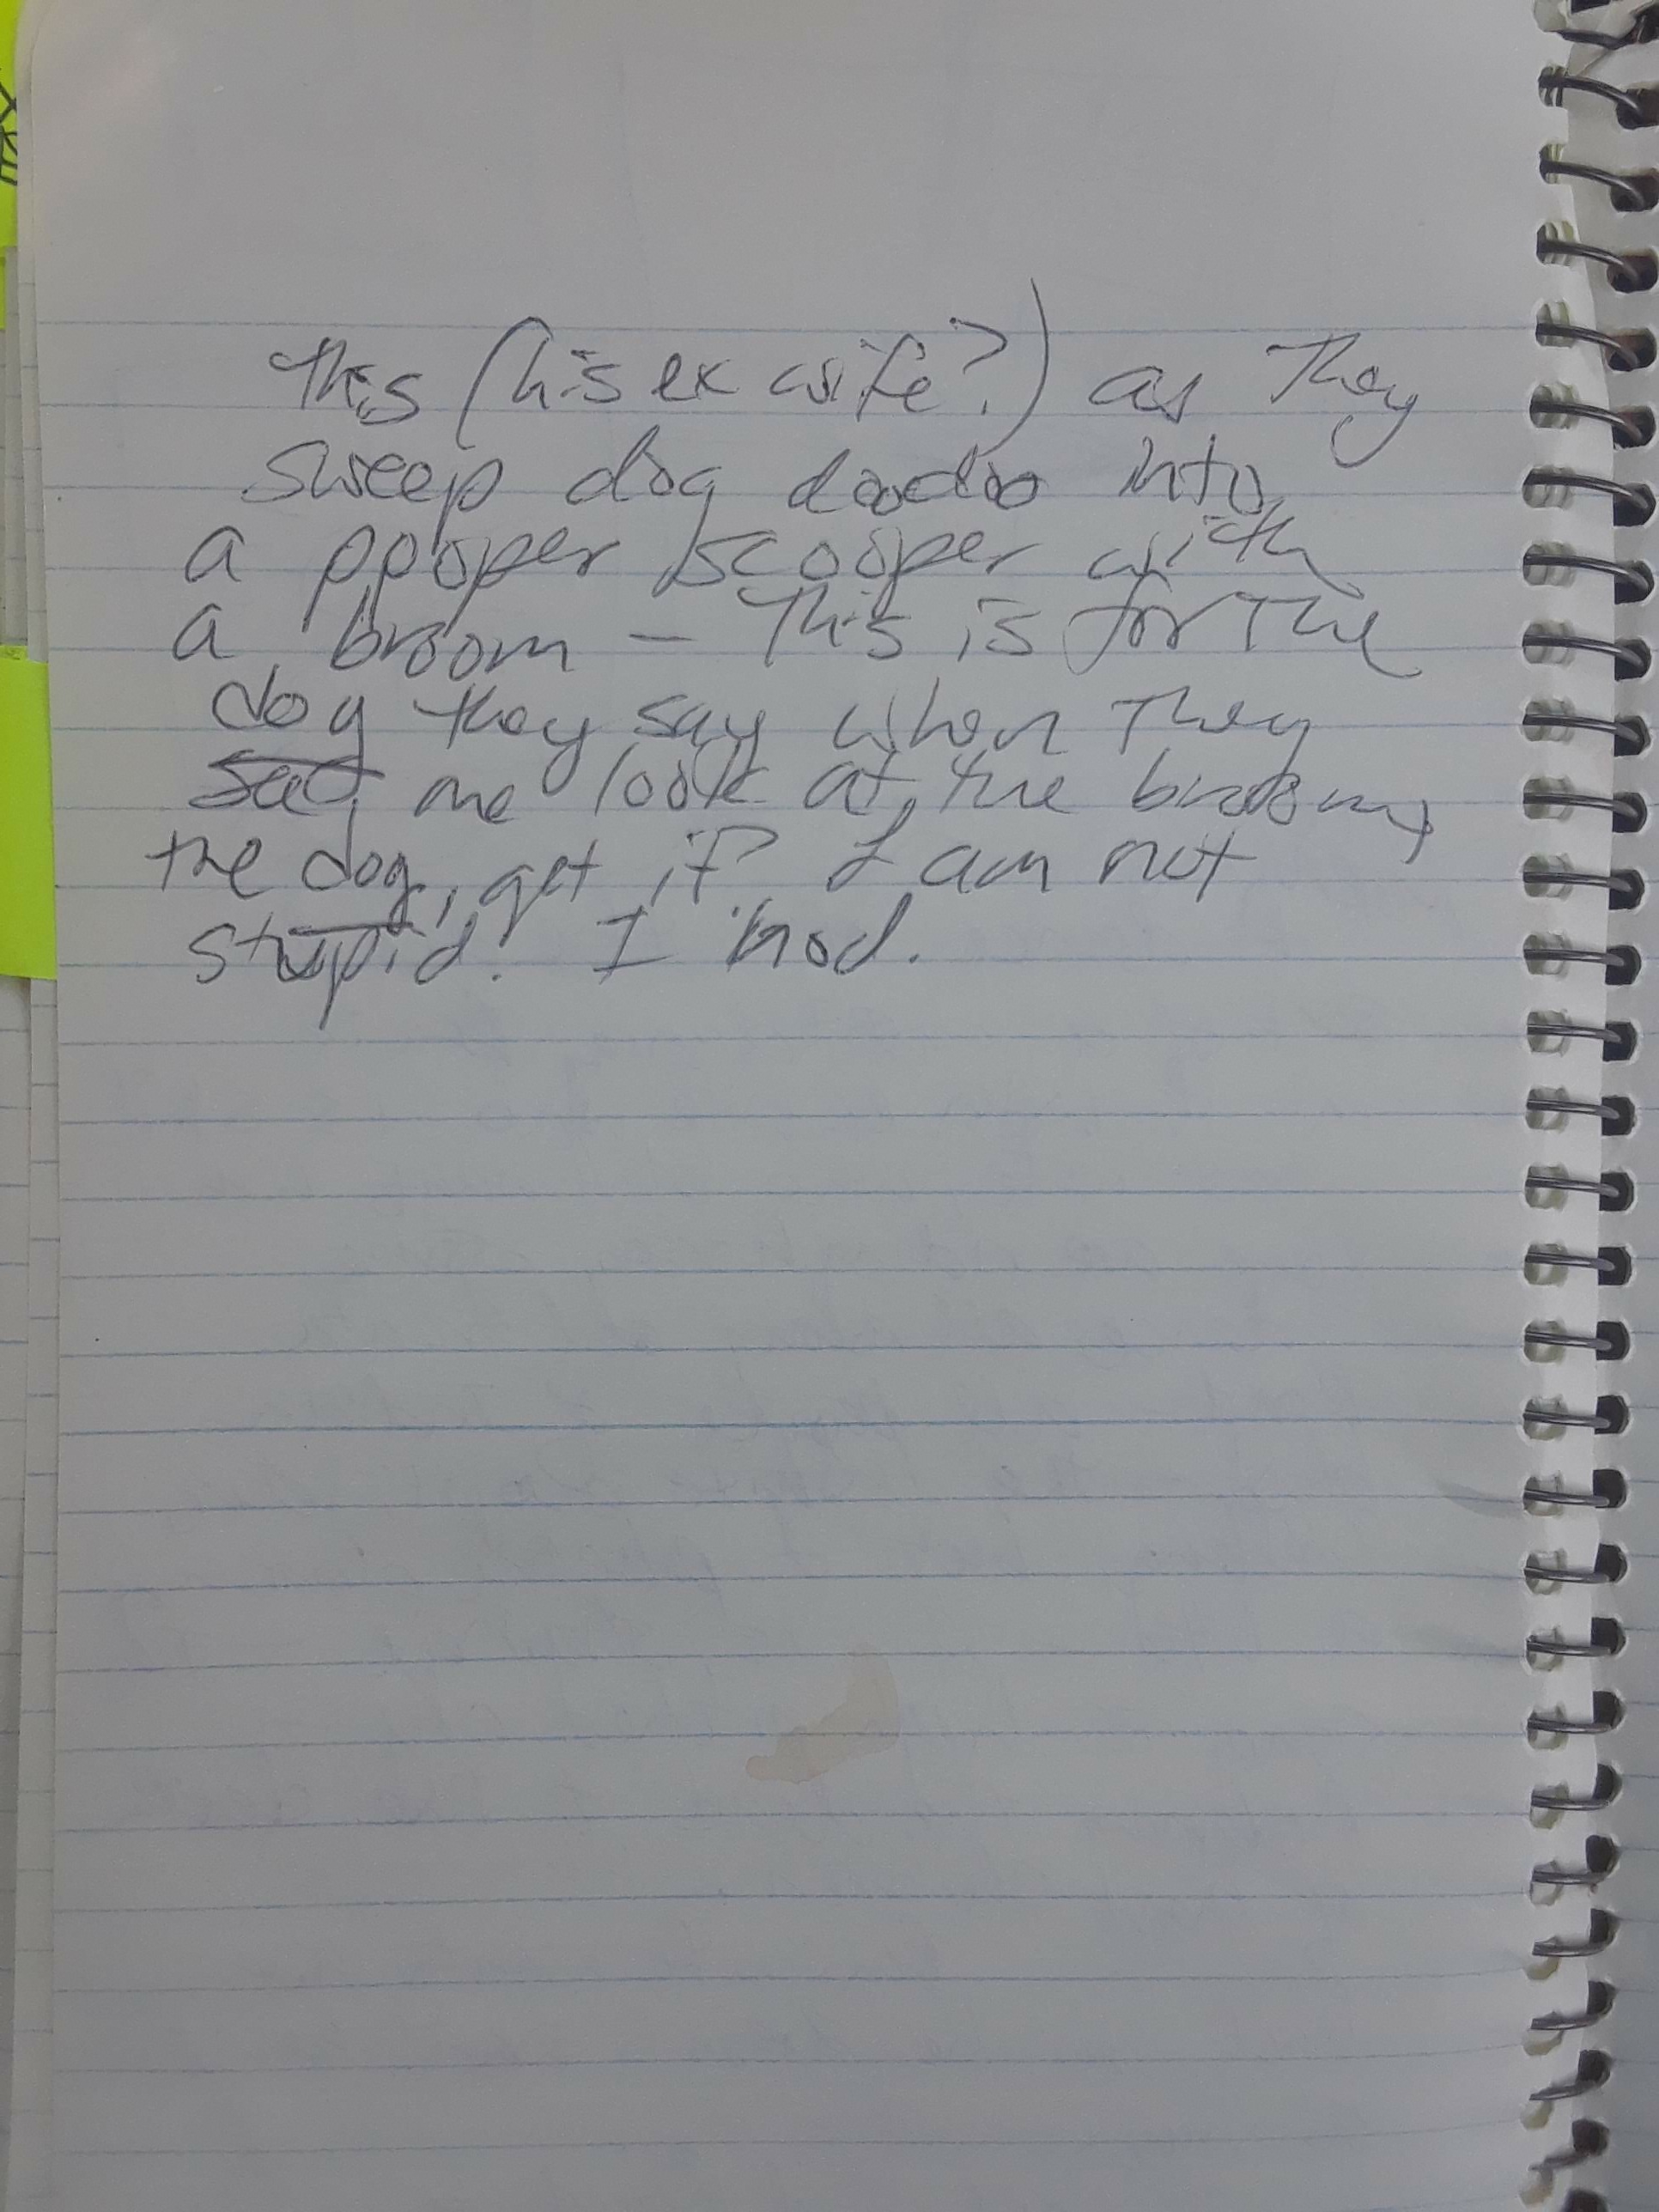 this (his ex wife?) as They
sweep dog doodoo into
a pooper scooper with
a broom — This is for The
dog they say when They
see me look at the broom,
the dog, get it? I am not
stupid. I nod.